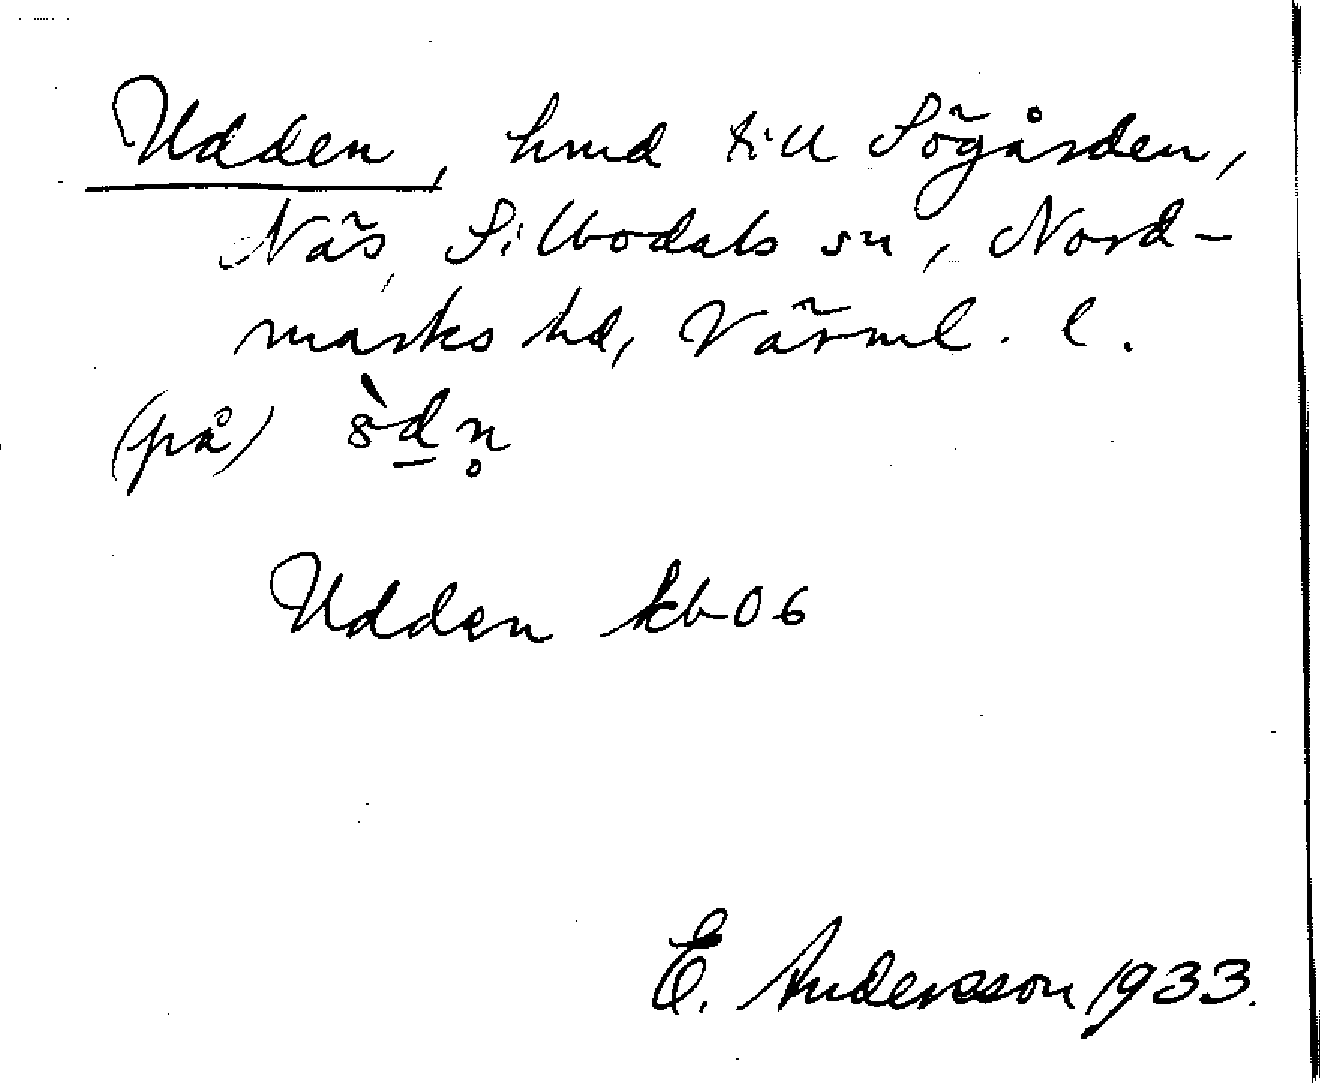 Udden, hmd till Sögården,
Näs, Sillbodals sn, Nord-
marks hd, Värml. l.
(på)
Udden kb 06
E. Andersson 1933.